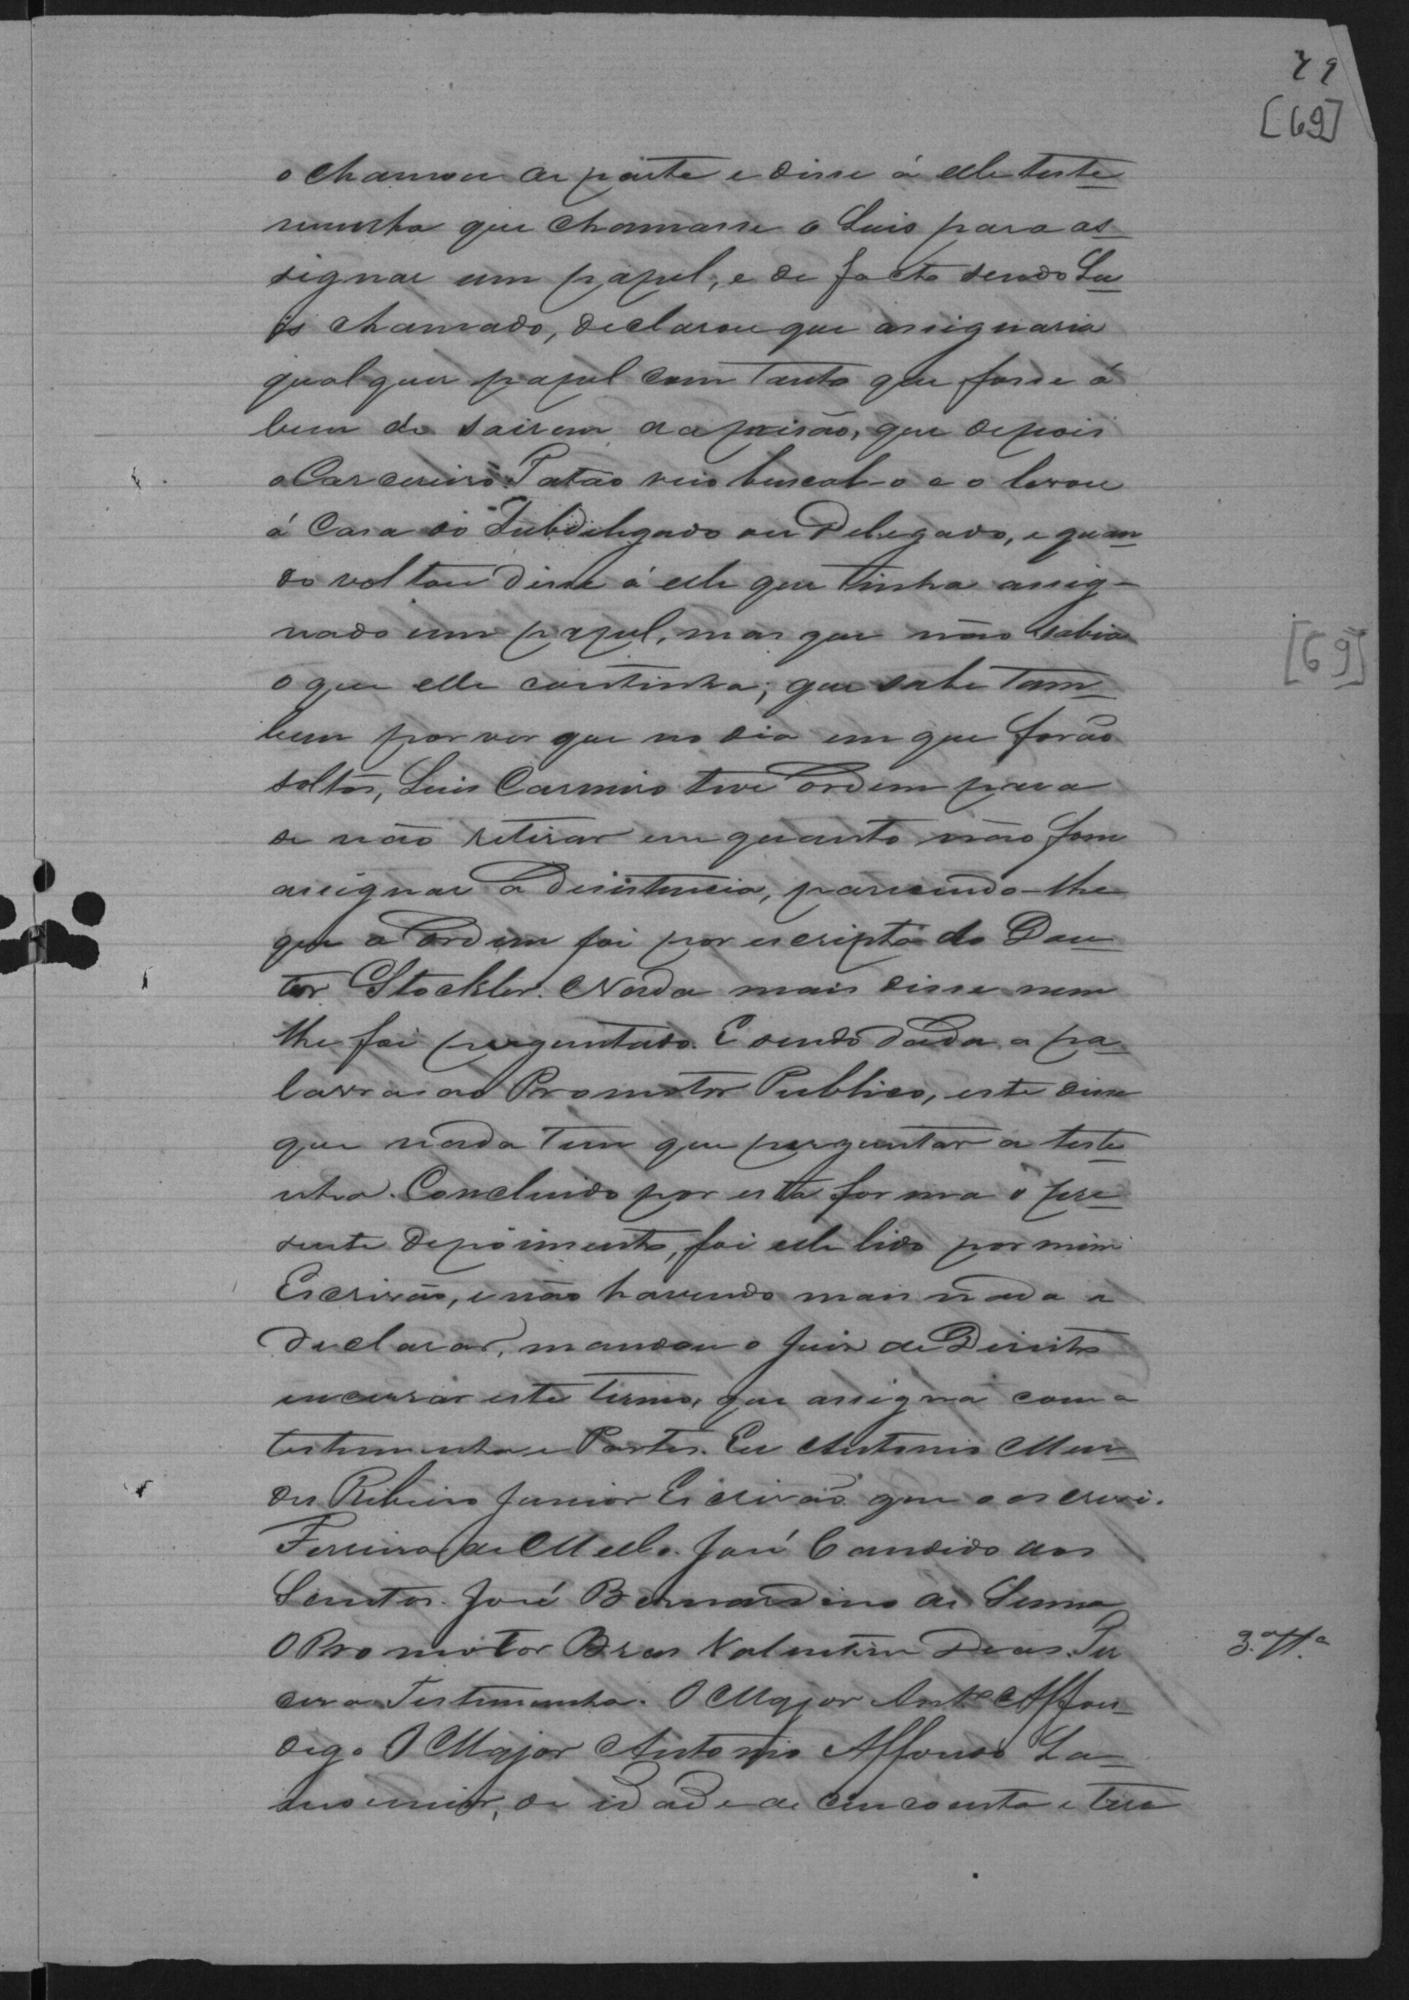 79
[69]
o chamou á parte e disse á elle teste
munha que chamasse o Luis para as
signar um papel, e de facto sendo Lu
is chamado, declarou que assignaria
qualquer papel com tanto que fosse á
bem de sairem da prisão, que depois
o Carcereiro Patão veio buscal-o e o levou
á Casa do Subdelegado ou Delegado, e quan
do voltou disse á elle que tinha assig-
nado um papel, mas que não sabia
o que elle continha; que sabe tam
bem por ver que no dia em que forão
soltos, Luis Carneiro teve ordem para
se não retirar em quanto não fosse
assignar a desistencia, parecendo-lhe
que a ordem foi por escripto do Dou
tor Stockler. Nada mais disse nem
lhe foi perguntado. E sendo dada a pa
lavra ao Promotor Publico, este disse
que nada tem que perguntar a teste
nha. Concluido por esta forma o pre
sente depoimento, foi elle lido por mim
Escrivão, e não havendo mais nada a
declarar, mandou o Juiz de Direito
encerrar este termo, que assigna com a
testemunha e Partes. Eu Antonio Men
des Ribeiro Junior Escrivão que o escrevi.
Ferreira de Mello. José Candido dos
Santos. José Bernardino de Senna
O Promotor Bras Valentim Dias. Ter
ceira Testemunha. O Major Antº Affon
3.ª Tª
digo O Major Antonio Affonso La
mounier, de idade de cincoenta e tres
[69]